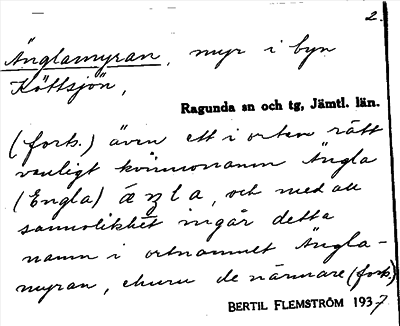 2.
Änglamyran, myr i byn
Köttsjön,
Ragunda sn och tg, Jämtl. län.
(forts.) även ett i orten rätt
vanligt kvinnonamn Ängla
(Engla) äŋla, och med all
sannolikhet ingår detta
namn i ortnamnet Ängla-
myran, ehuru de närmare (forts.)
BERTIL FLEMSTRÖM 1937